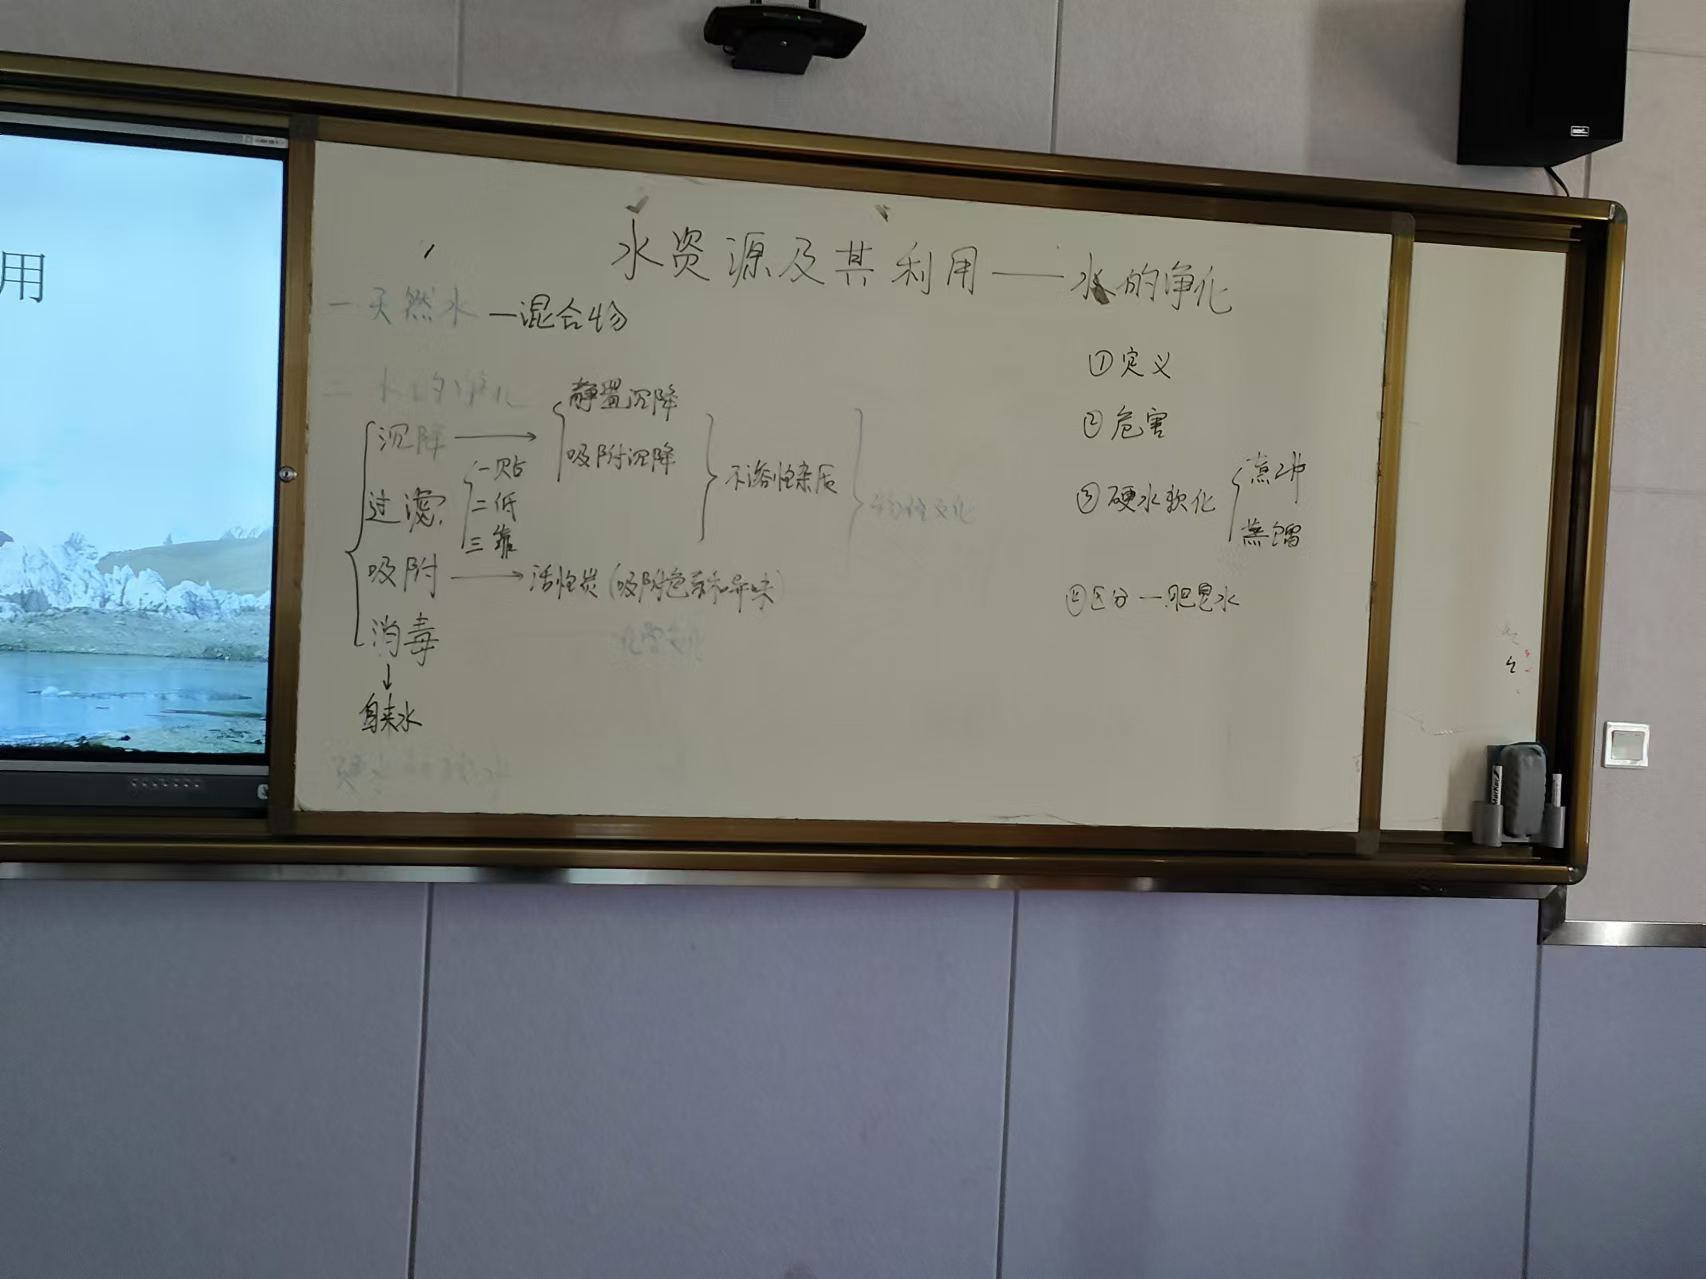 用
水资源及其利用——水的净化
一 天然水 —混合物
二 水的净化
沉降 → 静置沉降
吸附沉降
不溶性杂质
物理变化
过滤
一贴
二低
三靠
吸附 → 活性炭(吸附色素和异味)
化学变化
消毒
↓
自来水
硬水和软水
①定义
②危害
③硬水软化
煮沸
蒸馏
④区分—肥皂水
Marker